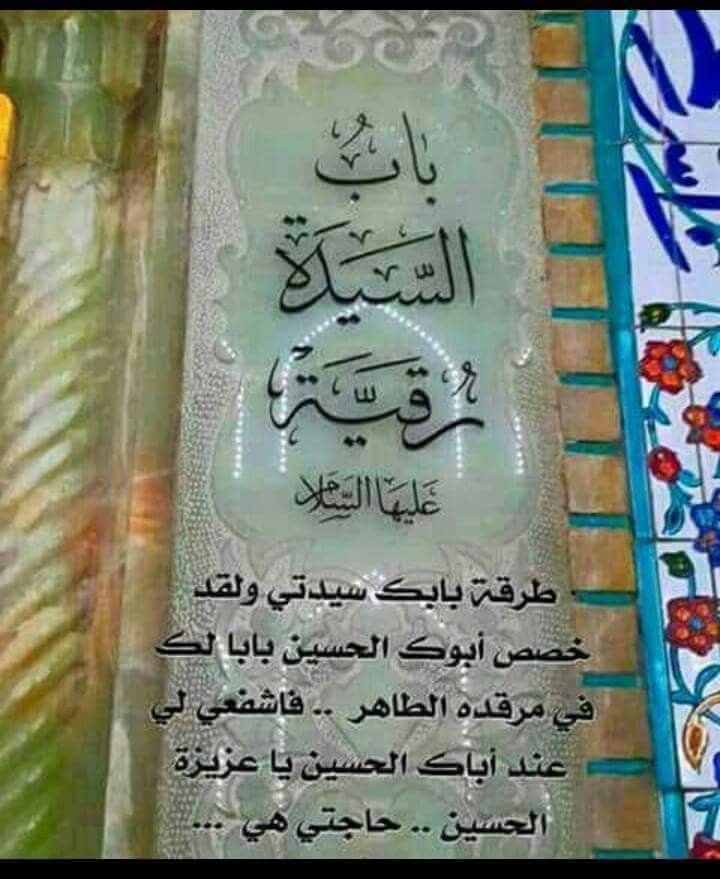 بابُ
السَّيِّدَةِ
رُقَيَّةَ
عَلَيهَا السَّلَام
طرقة بابك سيدتي ولقد
خصص أبوك الحسين بابا لك
في مرقده الطاهر .. فاشفعي لي
عند أباك الحسين يا عزيزة
الحسين .. حاجتي هي ...